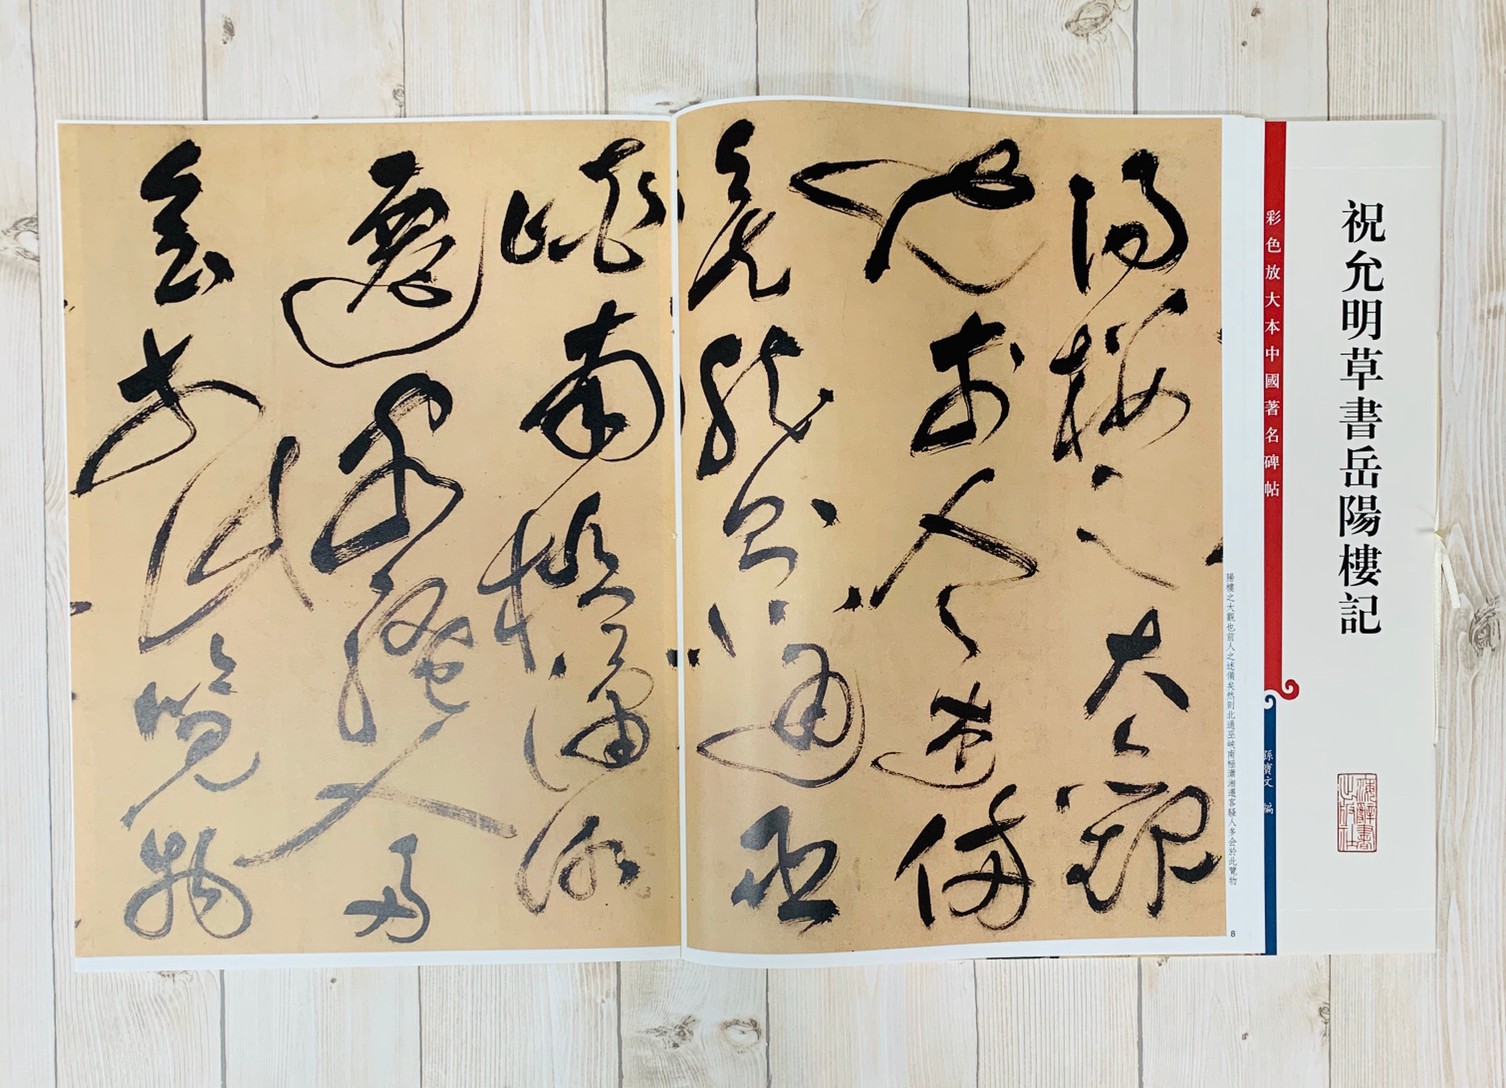 祝允明草書岳陽樓記
彩色放大本中國著名碑帖
孫寶文 編
陽樓之大觀也前人之述備矣然則北通巫峽南極瀟湘遷客騷人多會於此覽物
8
陽樓之大觀
也前人之述備
矣然則北通巫
峽南極瀟湘
遷客騷人多
會於此覽物